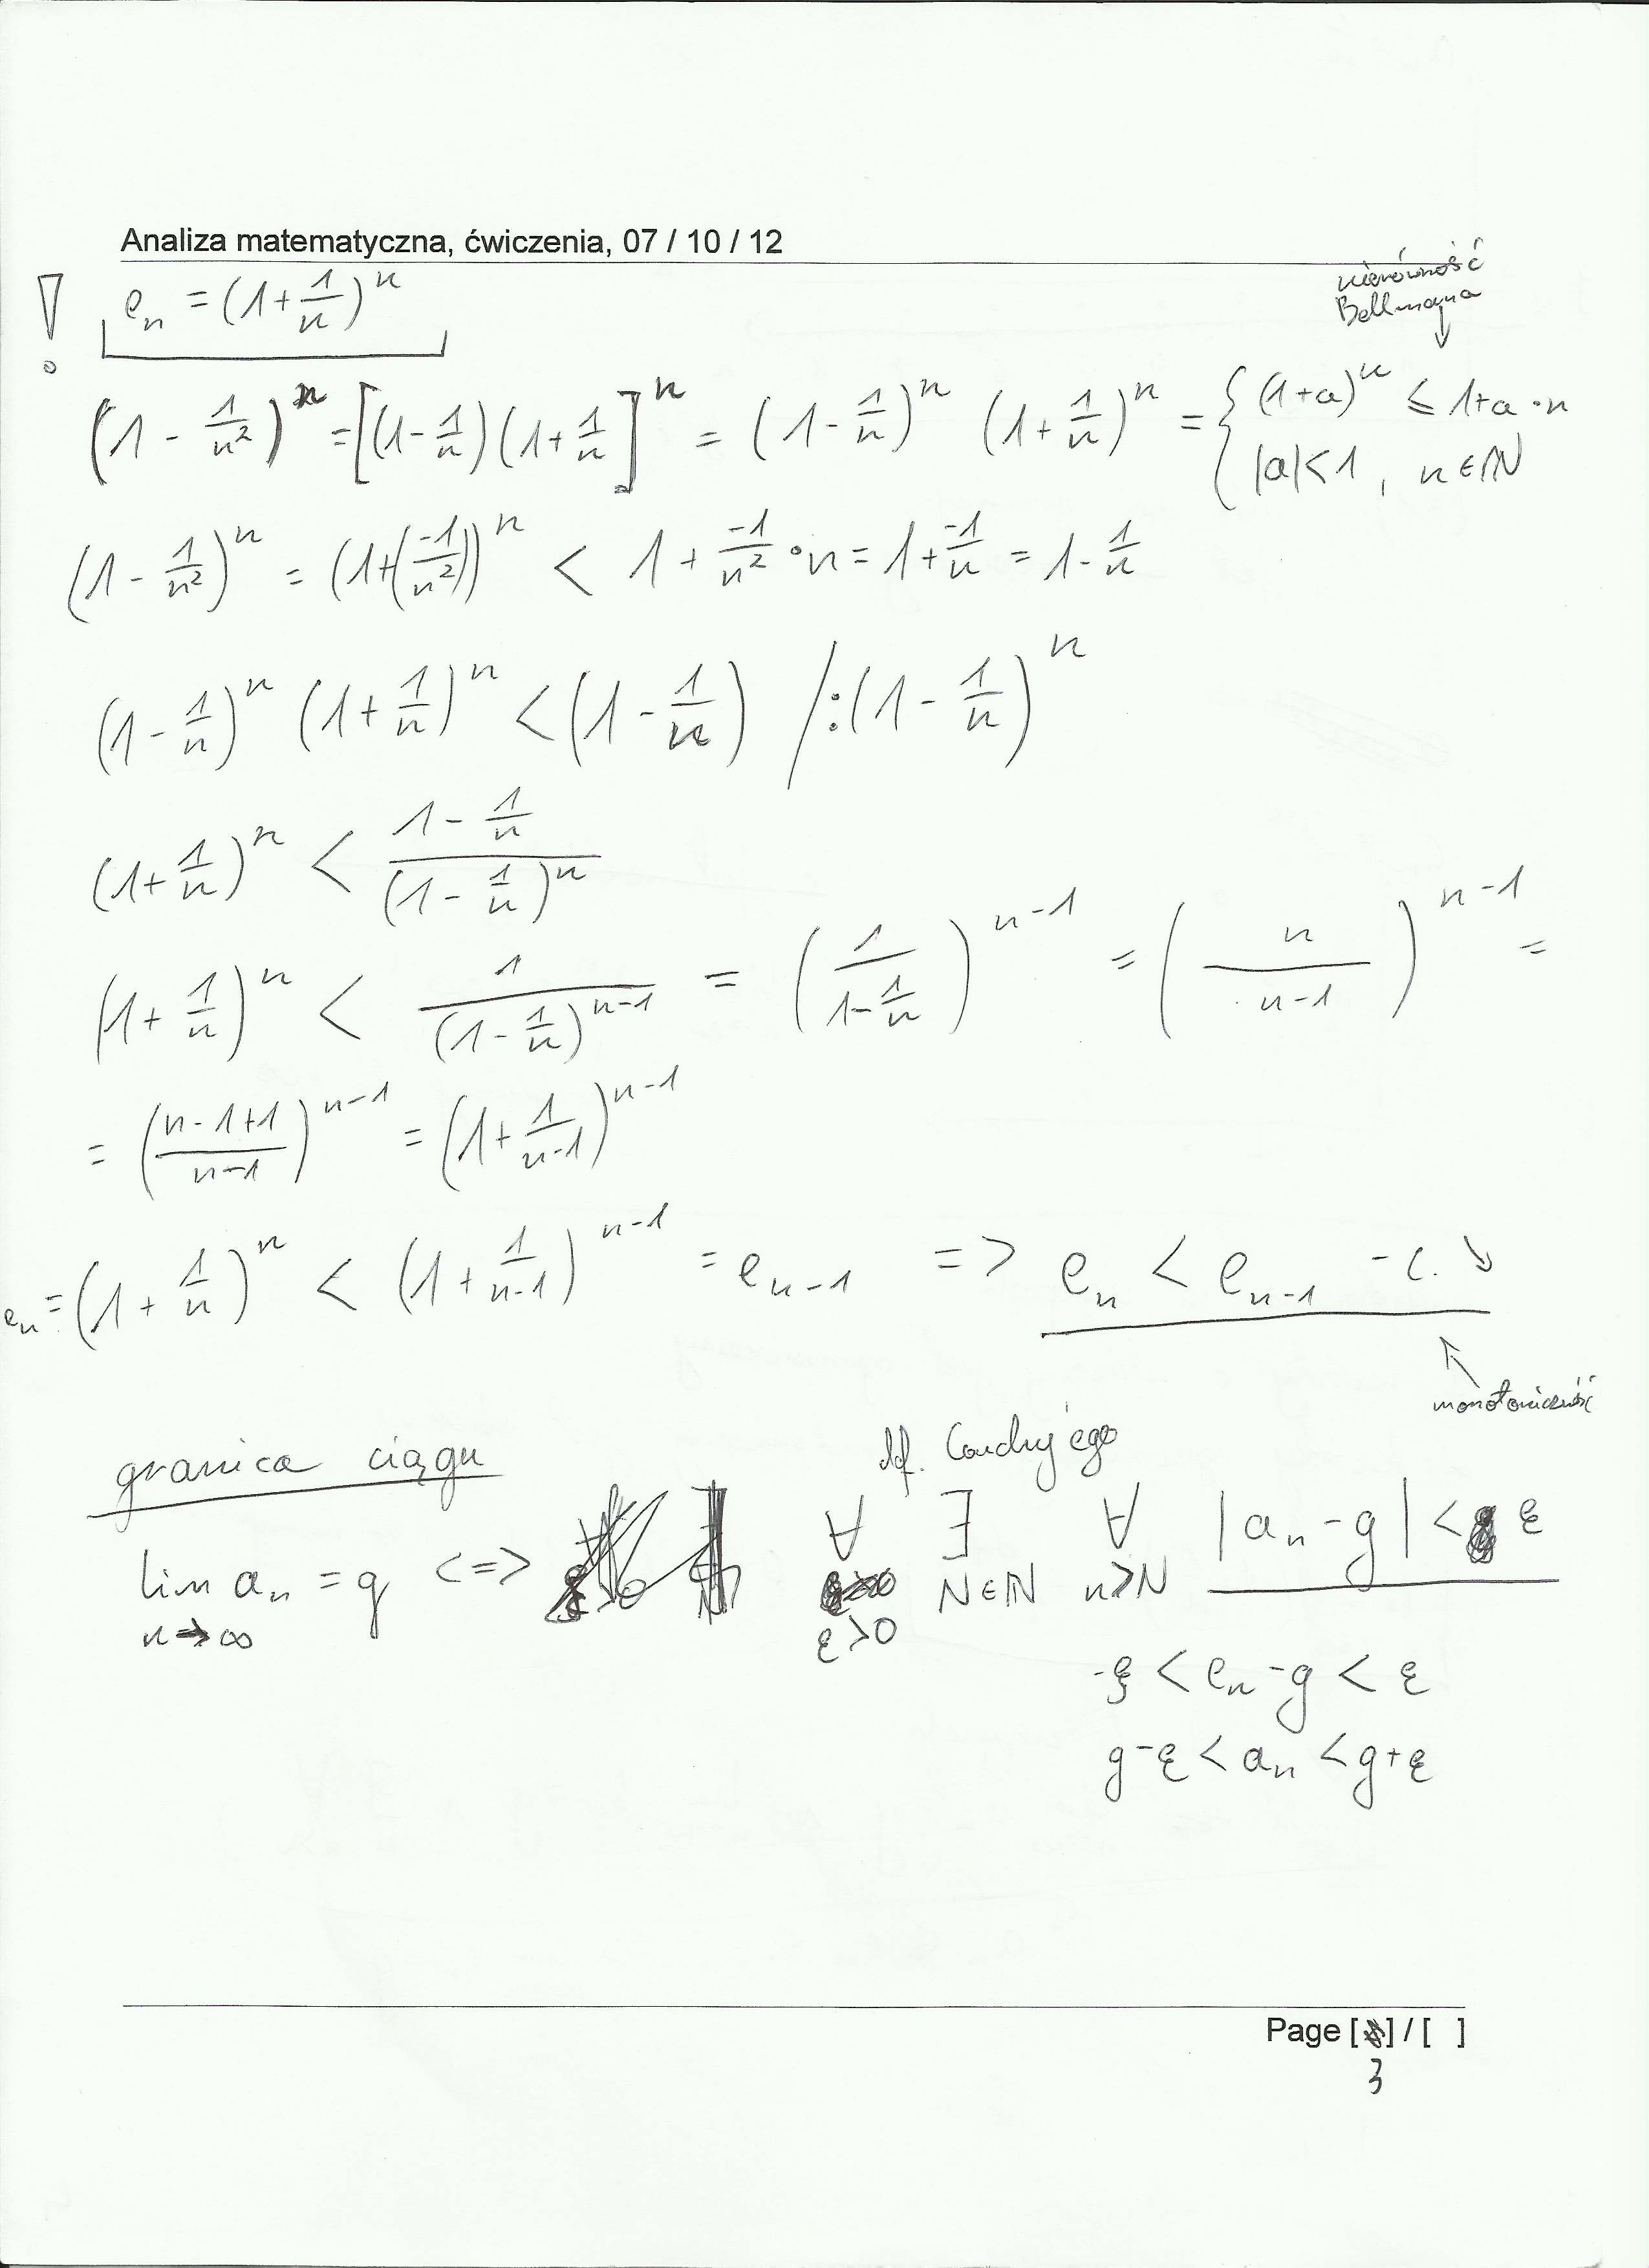 Analiza matematyczna, ćwiczenia, 07 / 10 / 12
! e_n = (1 + 1/n)^n
nierówność
Bellmana
(1 - 1/n²)^n = [(1 - 1/n)(1 + 1/n]^n = (1 - 1/n)^n (1 + 1/n)^n = { (1+a)^n ≤ 1+a·n
|a|<1, n∈ℕ
(1 - 1/n²)^n = (1+(-1/n²))^n < 1 + -1/n² · n = 1 + -1/n = 1 - 1/n
(1 - 1/n)^n (1 + 1/n)^n < (1 - 1/n) /:(1 - 1/n)^n
(1 + 1/n)^n < (1 - 1/n)/(1 - 1/n)^n
(1 + 1/n)^n < 1/(1 - 1/n)^(n-1) = (1/(1 - 1/n))^(n-1) = (n/(n-1))^(n-1) =
= ((n-1+1)/(n-1))^(n-1) = (1 + 1/(n-1))^(n-1)
e_n = (1 + 1/n)^n < (1 + 1/(n-1))^(n-1) = e_(n-1) => e_n < e_(n-1) - c. ↘
monotoniczność
granica ciągu
def. Cauchy'ego
lim a_n = g <=> ∀ ∃ ∀ |a_n - g| < ε
n→∞ ε>0 N∈ℕ n>N
-ε < e_n - g < ε
g-ε < a_n < g+ε
Page [ ] / [ ]
3